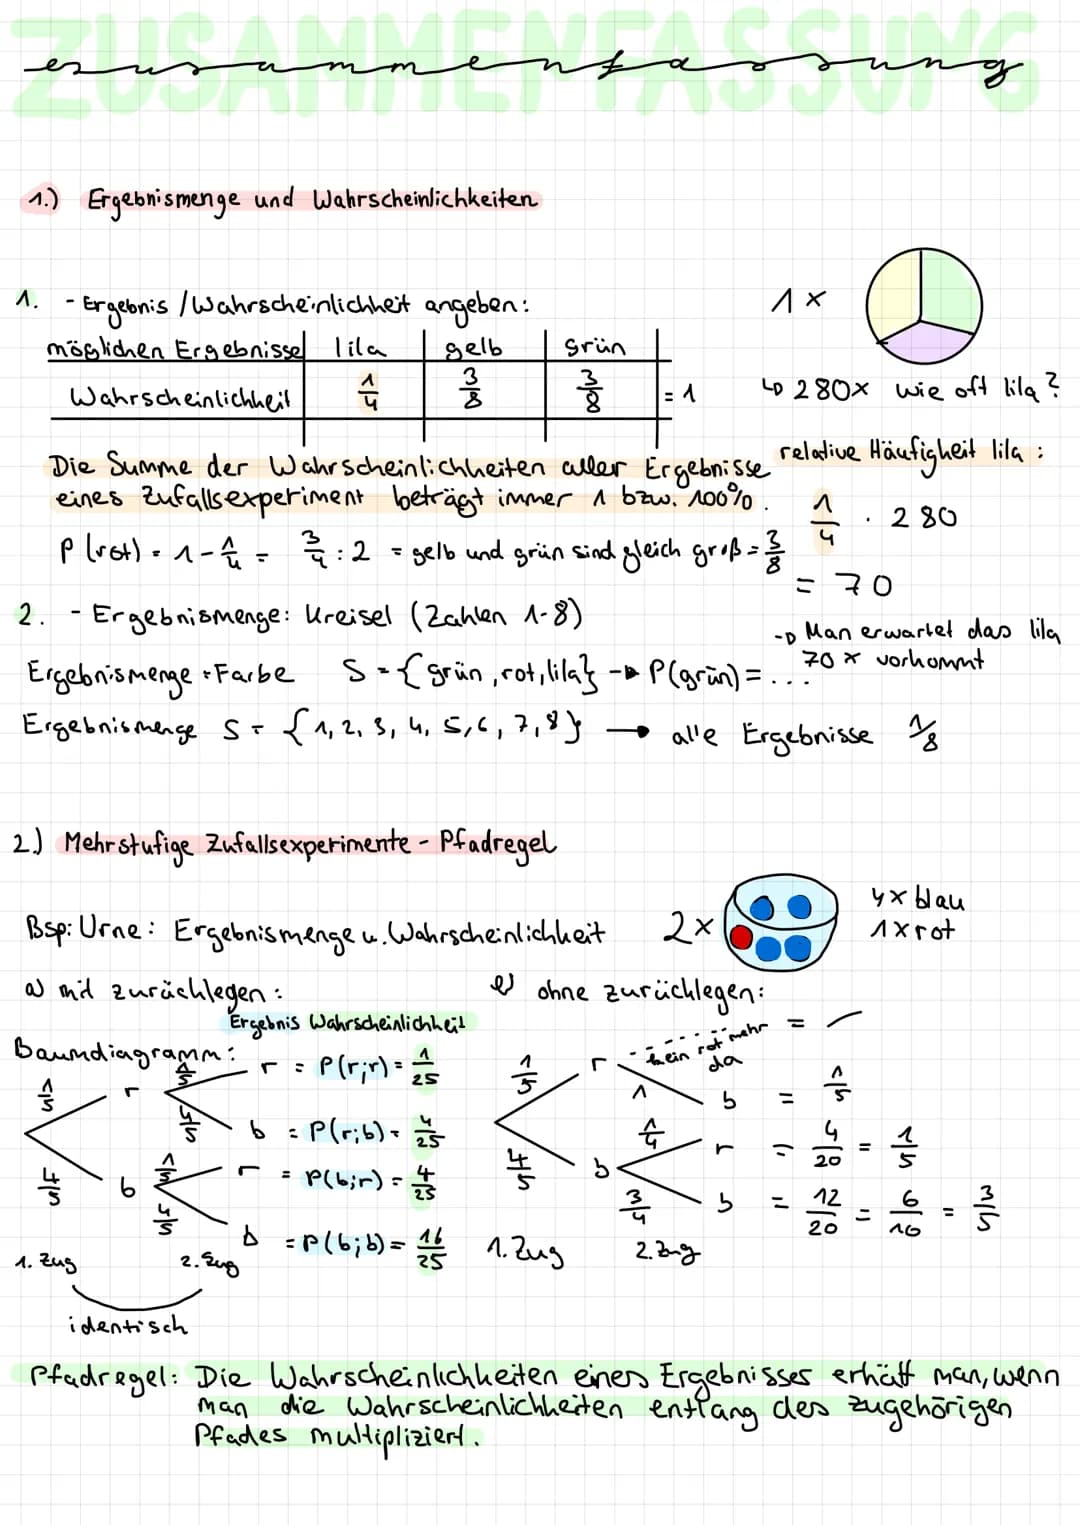 ZUSAMMENFASSUNG
zusammenfassung
1.) Ergebnismenge und Wahrscheinlichkeiten
1. - Ergebnis / Wahrscheinlichkeit angeben:
1x
möglichen Ergebnisse lila gelb grün
Wahrscheinlichkeit 1/4 3/8 3/8 = 1
↳ 280x wie oft lila?
Die Summe der Wahrscheinlichkeiten aller Ergebnisse
eines Zufallsexperiment beträgt immer 1 bzw. 100%.
relative Häufigkeit lila:
1/4 · 280
P (rot) = 1 - 1/4 = 3/4 : 2 = gelb und grün sind gleich groß = 3/8
= 70
2. - Ergebnismenge: Kreisel (Zahlen 1-8)
→ Man erwartet das lila
70x vorkommt
Ergebnismenge : Farbe S = {grün, rot, lila} → P(grün) = ...
Ergebnismenge S = {1, 2, 3, 4, 5, 6, 7, 8} → alle Ergebnisse 1/8
2.) Mehrstufige Zufallsexperimente - Pfadregel
Bsp: Urne: Ergebnismenge u. Wahrscheinlichkeit 2x
4x blau
1x rot
a) mit zurücklegen:
ohne zurücklegen:
Ergebnis Wahrscheinlichkeit
Baumdiagramm:
1/5 r 1/5 r = P(r;r) = 1/25
4/5 b = P(r;b) = 4/25
4/5 b 1/5 r = P(b;r) = 4/25
4/5 b = P(b;b) = 16/25
1. Zug 2. Zug
identisch
1/5 r kein rot mehr da = —
1 b = 1/5
4/5 b 1/4 r = 4/20 = 1/5
3/4 b = 12/20 = 6/10 = 3/5
1. Zug 2. Zug
Pfadregel: Die Wahrscheinlichkeiten eines Ergebnisses erhält man, wenn
man die Wahrscheinlichkeiten entlang des zugehörigen
Pfades multipliziert.